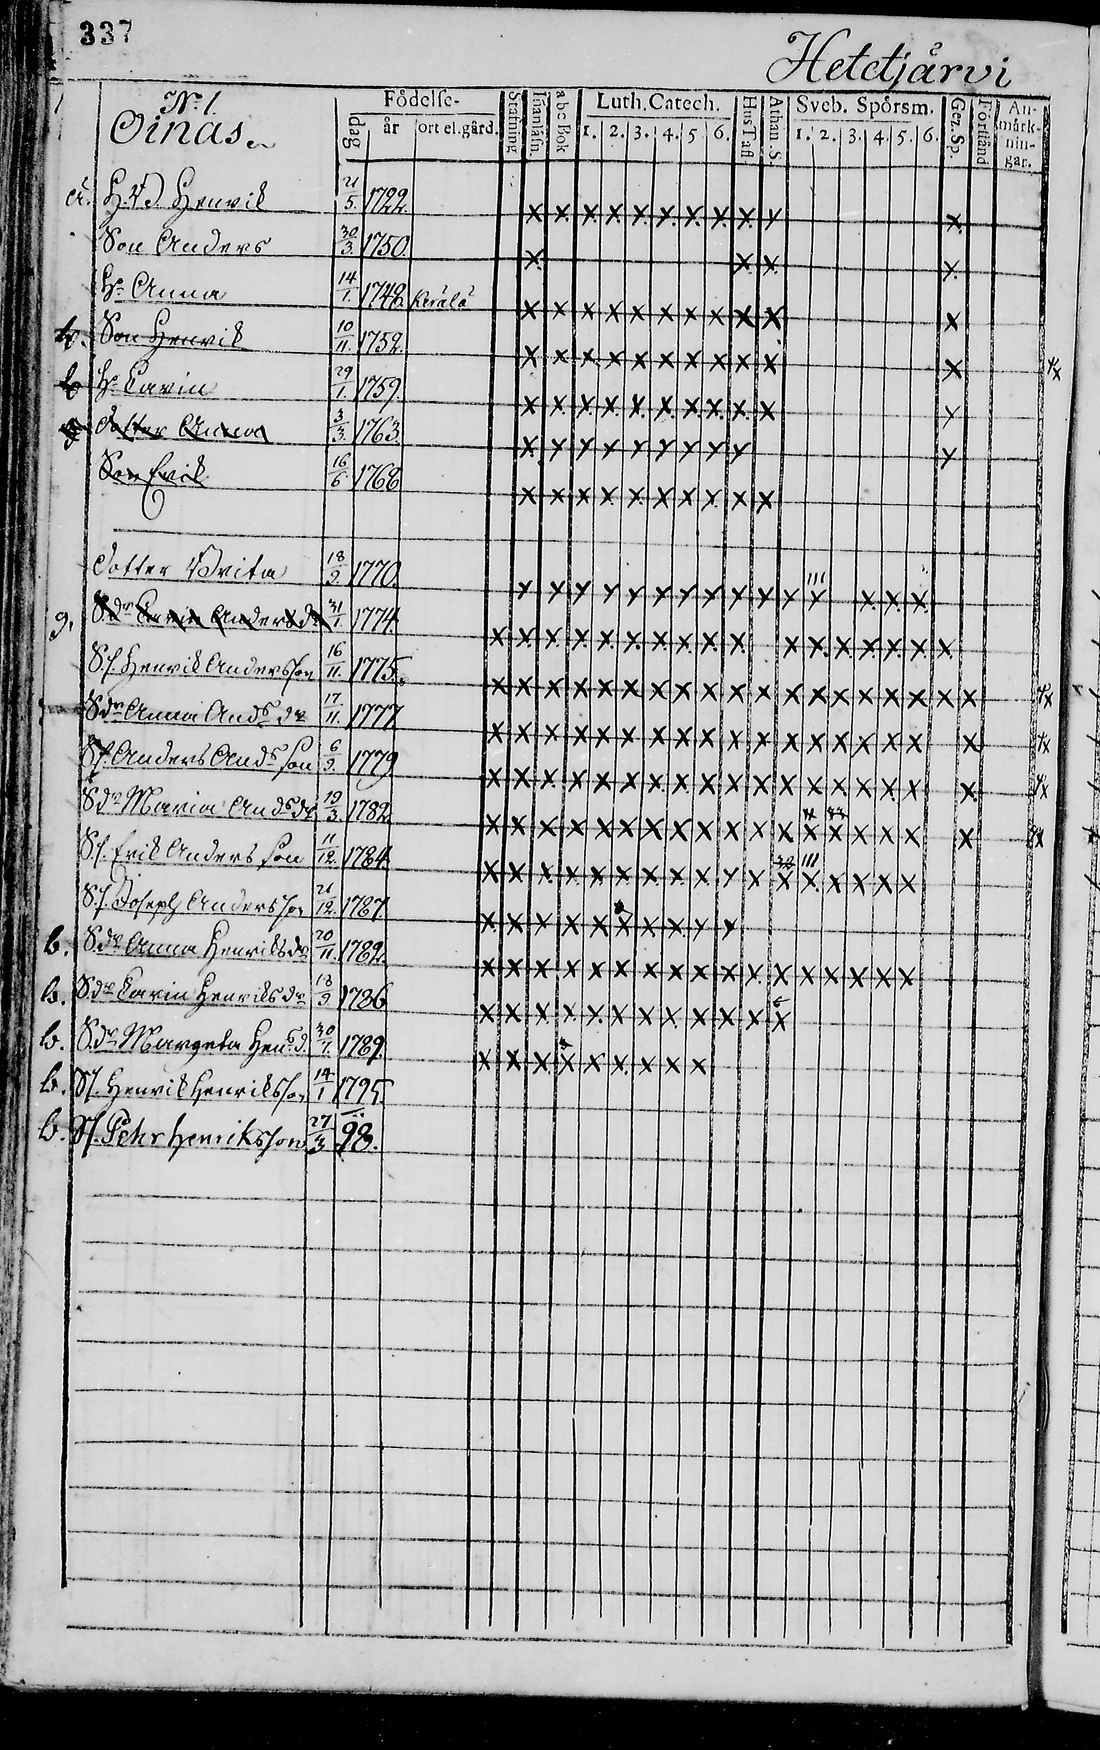 337
Hetetjärvi
No. 1
Oinas.
Födelse-
dag
år
ort el. gård.
Stafning
Innanläsn.
abc Bok
Luth. Catech.
1. 2. 3. 4. 5. 6.
Hus Tafl.
Athan. S.
Sveb. Spörsm.
1. 2. 3. 4. 5. 6.
Gez. Sp.
Förstånd
An-
märk-
nin-
gar.
a. Henrik 21/5. 1722. x x x x x x x x x x x
Son Anders 30/3. 1750. x x x x
Hu Anna 14/1. 1748. x x x x x x x x x x x
b. Son Henrik 10/11. 1752. x x x x x x x x x x x
b Hu Carin 29/1. 1759. x x x x x x x x x x x
Dotter Anna 3/3. 1763. x x x x x x x x x x
Son Erik 16/6 1768 x x x x x x x x x x
Dotter Brita 18/9. 1770. x x x x x x x x x x x x x x x
g. Sdr Carin Andersdr 31/1. 1774. x x x x x x x x x x x x x x x x x
S.s. Henrik Andersson 16/11. 1775. x x x x x x x x x x x x x x x x x x x
Sdr Anna Ands dr 17/11. 1777 x x x x x x x x x x x x x x x x x x
Ss. Anders Ands son 6/9. 1779 x x x x x x x x x x x x x x x x x x
Sdr Maria Ands dr 19/3. 1782. x x x x x x x x x x x x x x x x x x
Ss. Erik Andersson 11/12. 1784. x x x x x x x x x x x x x x x x x
Ss. Joseph Andersson 21/12. 1787 x x x x x x x x x x
b. Sdr Anna Henriksdr 20/11. 1782. x x x x x x x x x x x x x x x x x
b. Sdr Carin Henriksdr 18/9 1786 x x x x x x x x x x x x
b. Sdr Margeta Hens d. 30/7. 1789. x x x x x x x x x
b. Ss. Henrik Henriksson 14/1 1795.
b. Ss. Pehr Henriksson 27/3 98.